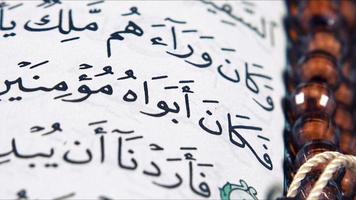 السَّفِي
وَكَانَ وَرَآءَهُم مَّلِكٌ يَأ
فَكَانَ أَبَوَاهُ مُؤْمِنَيْنِ
فَأَرَدْنَآ أَن يُبْدِ